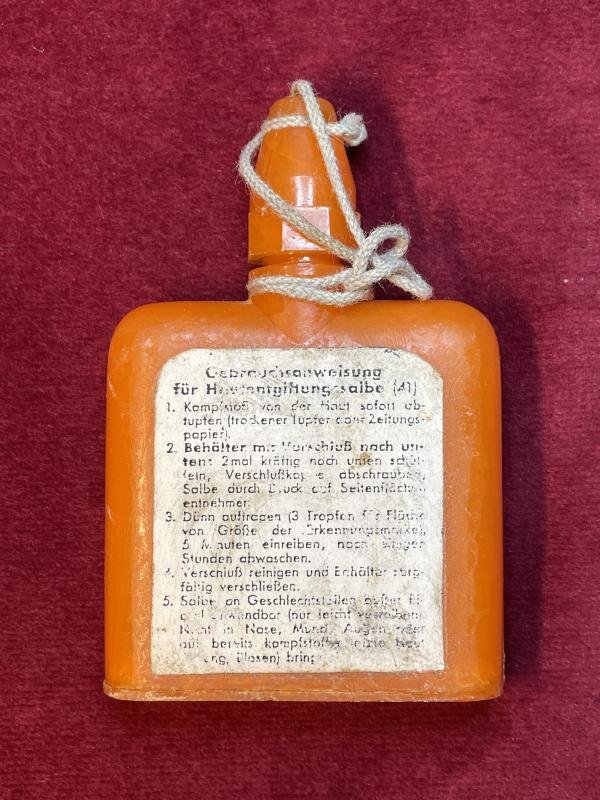 Gebrauchsanweisung
für Hautentgiftungssalbe (41)
1. Kampfstoff von der Haut sofort ab-
tupfen (trockener Tupfer oder Zeitungs-
papier).
2. Behälter mit Verschluß nach un-
ten: 2mal kräftig nach unten schüt-
teln, Verschlußkappe abschrauben,
Salbe durch Druck auf Seitenflächen
entnehmen
3. Dünn auftragen (3 Tropfen für Fläche
von Größe der Erkennungsmarke),
5 Minuten einreiben, nach
Stunden abwaschen.
4. Verschluß reinigen und Behälter sorg-
fältig verschließen.
5. Salbe an Geschlechtsteilen außer
(nur leicht
Nicht in Nase, Mund, Augen oder
auf bereits
Blasen)